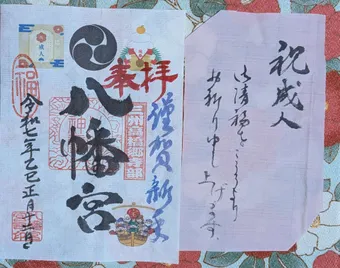 祝成人
御清福をこころより
お祈り申し上げます
奉拝
謹賀新年
八幡宮
令和七年乙巳正月十三日
福